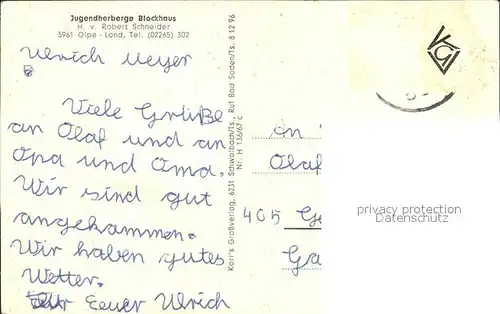 Jugendherberge Blockhaus
H. v. Robert Schneider
5961 Olpe - Land, Tel. (02265) 302
Ulrich Meyer
Viele Grüße
an Olaf und an
Opa und Oma.
Wir sind gut
angekammen.
Wir haben gutes
Wetter.
Eeuer Ulrich
Korr's Großverlag, 6231 Schwalbach/Ts., Ruf Bad Soden/Ts. 8 12 96
Nr. H 136/67 c
An
Olaf
405
privacy protection
Datenschutz